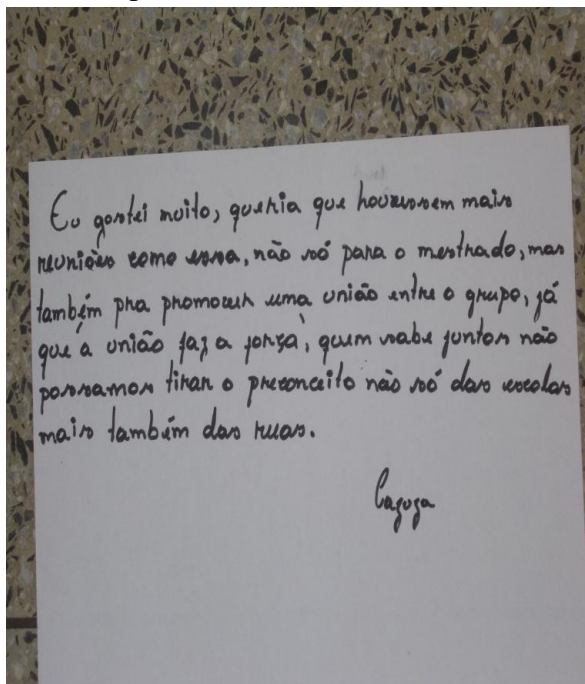 Eu gostei muito, queria que houvessem mais
reuniões como essa, não só para o mestrado, mas
também pra promover uma união entre o grupo, já
que "a união faz a força", quem sabe juntos não
possamos tirar o preconceito não só das escolas
mais também das ruas.
Cazuza